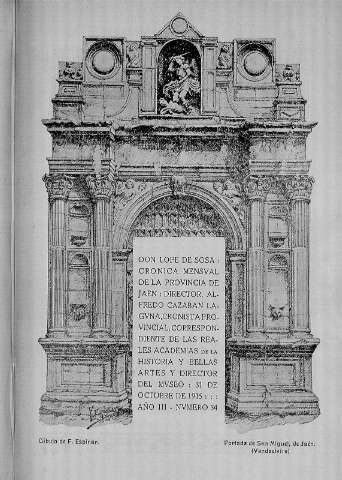 DON LOPE DE SOSA :
CRONICA MENSVAL
DE LA PROVINCIA DE
JAEN : DIRECTOR, AL-
FREDO CAZABAN LA-
GVNA, CRONISTA PRO-
VINCIAL, CORRESPON-
DIENTE DE LAS REA-
LES ACADEMIAS DE LA
HISTORIA Y BELLAS
ARTES Y DIRECTOR
DEL MVSEO : 31 DE
OCTUBRE DE 1915 : : :
AÑO III - NVMERO 34
Dibujo de F. Espinar.
Portada de San Miguel, de Jaén.
(Vandaelvira)